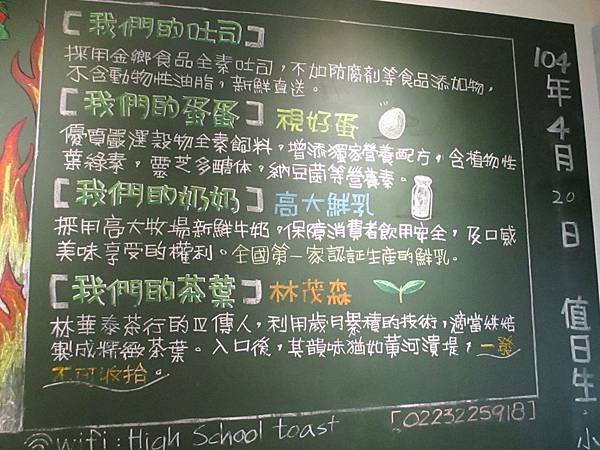 [我們的吐司]
採用金鄉食品全素吐司,不加防腐劑等食品添加物,
不含動物性油脂,新鮮直送。
[我們的蛋蛋] 視好蛋
優質嚴選穀物全素飼料,增添獨家營養配方,含植物性
葉綠素,靈芝多醣体,納豆菌等營養素。
[我們的奶奶] 高大鮮乳
採用高大牧場新鮮牛奶,保障消費者飲用安全,及口感
美味享受的權利。全國第一家認証生産的鮮乳。
[我們的茶葉] 林茂森
林華泰茶行的四傳人,利用歲月累積的技術,適當烘焙
製成精緻茶葉。入口後,其韻味猶如黃河潰堤,一發
不可收拾。
「0223225918」
wifi:High School toast
104年4月20日 值日生:小